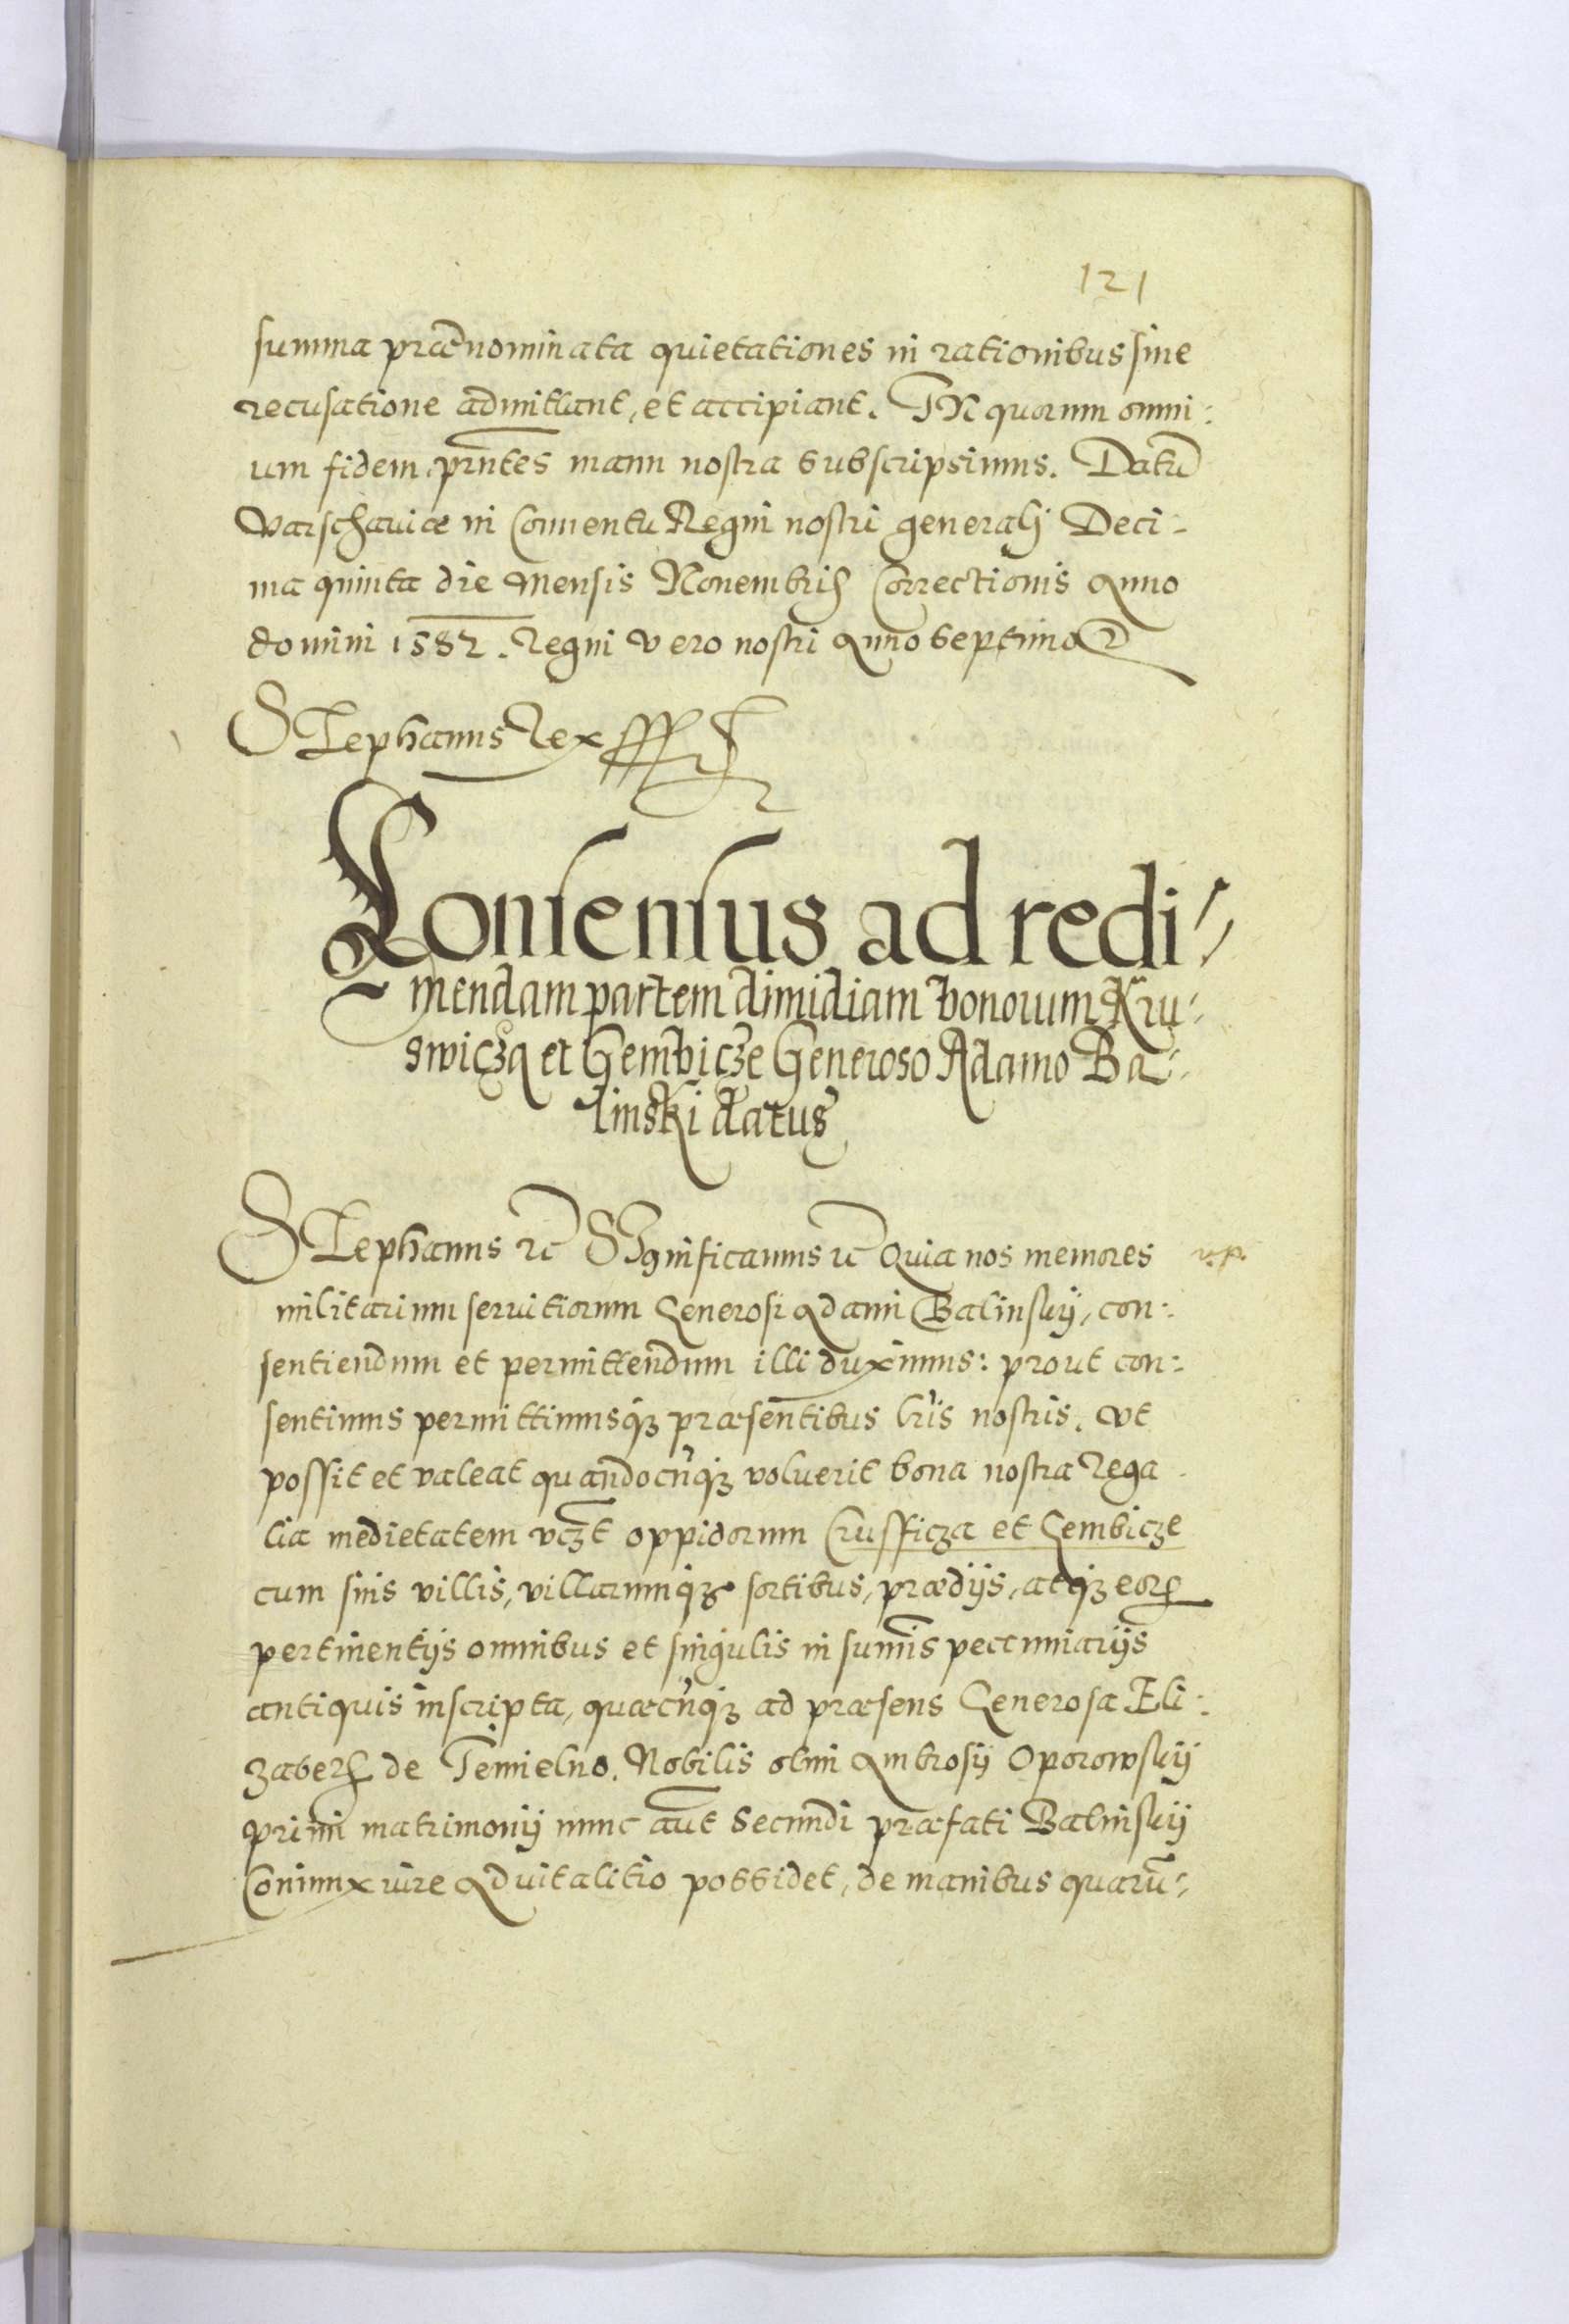 121
summa prænominata quietationes in rationibus sine
recusatione admittant, et accipiant. IN quorum omni:
um fidem pr̃ntes manu nostra subscripsimus. Datũ
Varschauiæ in Conuentu Regni nostri generali Deci:
ma quinta die Mensis Nouembris Correctionis Anno
domini 1582. Regni vero nostri Anno septimo
STephanus Rex
Consensus ad redi:
mendam partem dimidiam bonorum Kru:
swicza et Gembicze Generoso Adamo Ba:
linski datus
STephanus etc̃ SIgnificamus etc̃ Quia nos memores
militarium seruitiorum Generosi Adami Balinskij, con:
sentiendum et permittendum illi duximus: prout con:
sentimus permittimusqȝ præsentibus lr̃is nostris. Vt
possit et valeat quandocũqȝ voluerit bona nostra Rega
lia medietatem vcȝt oppidorum Crussficza et Gembicze
cum suis villis, villarumqȝ sortibus, prædijs, atqȝ eorꝝ
pertinentijs omnibus et singulis in sum̃is pecuniarijs
antiquis inscripta, quæcũqȝ ad præsens Generosa Eli:
zabeth de Temielno. Nobilis olim Ambrosij Oporowskij
primi matrimonij nunc aũt secundi præfati Balinskij
Coniunx iure Aduitalitio possidet, de manibus quarũ: